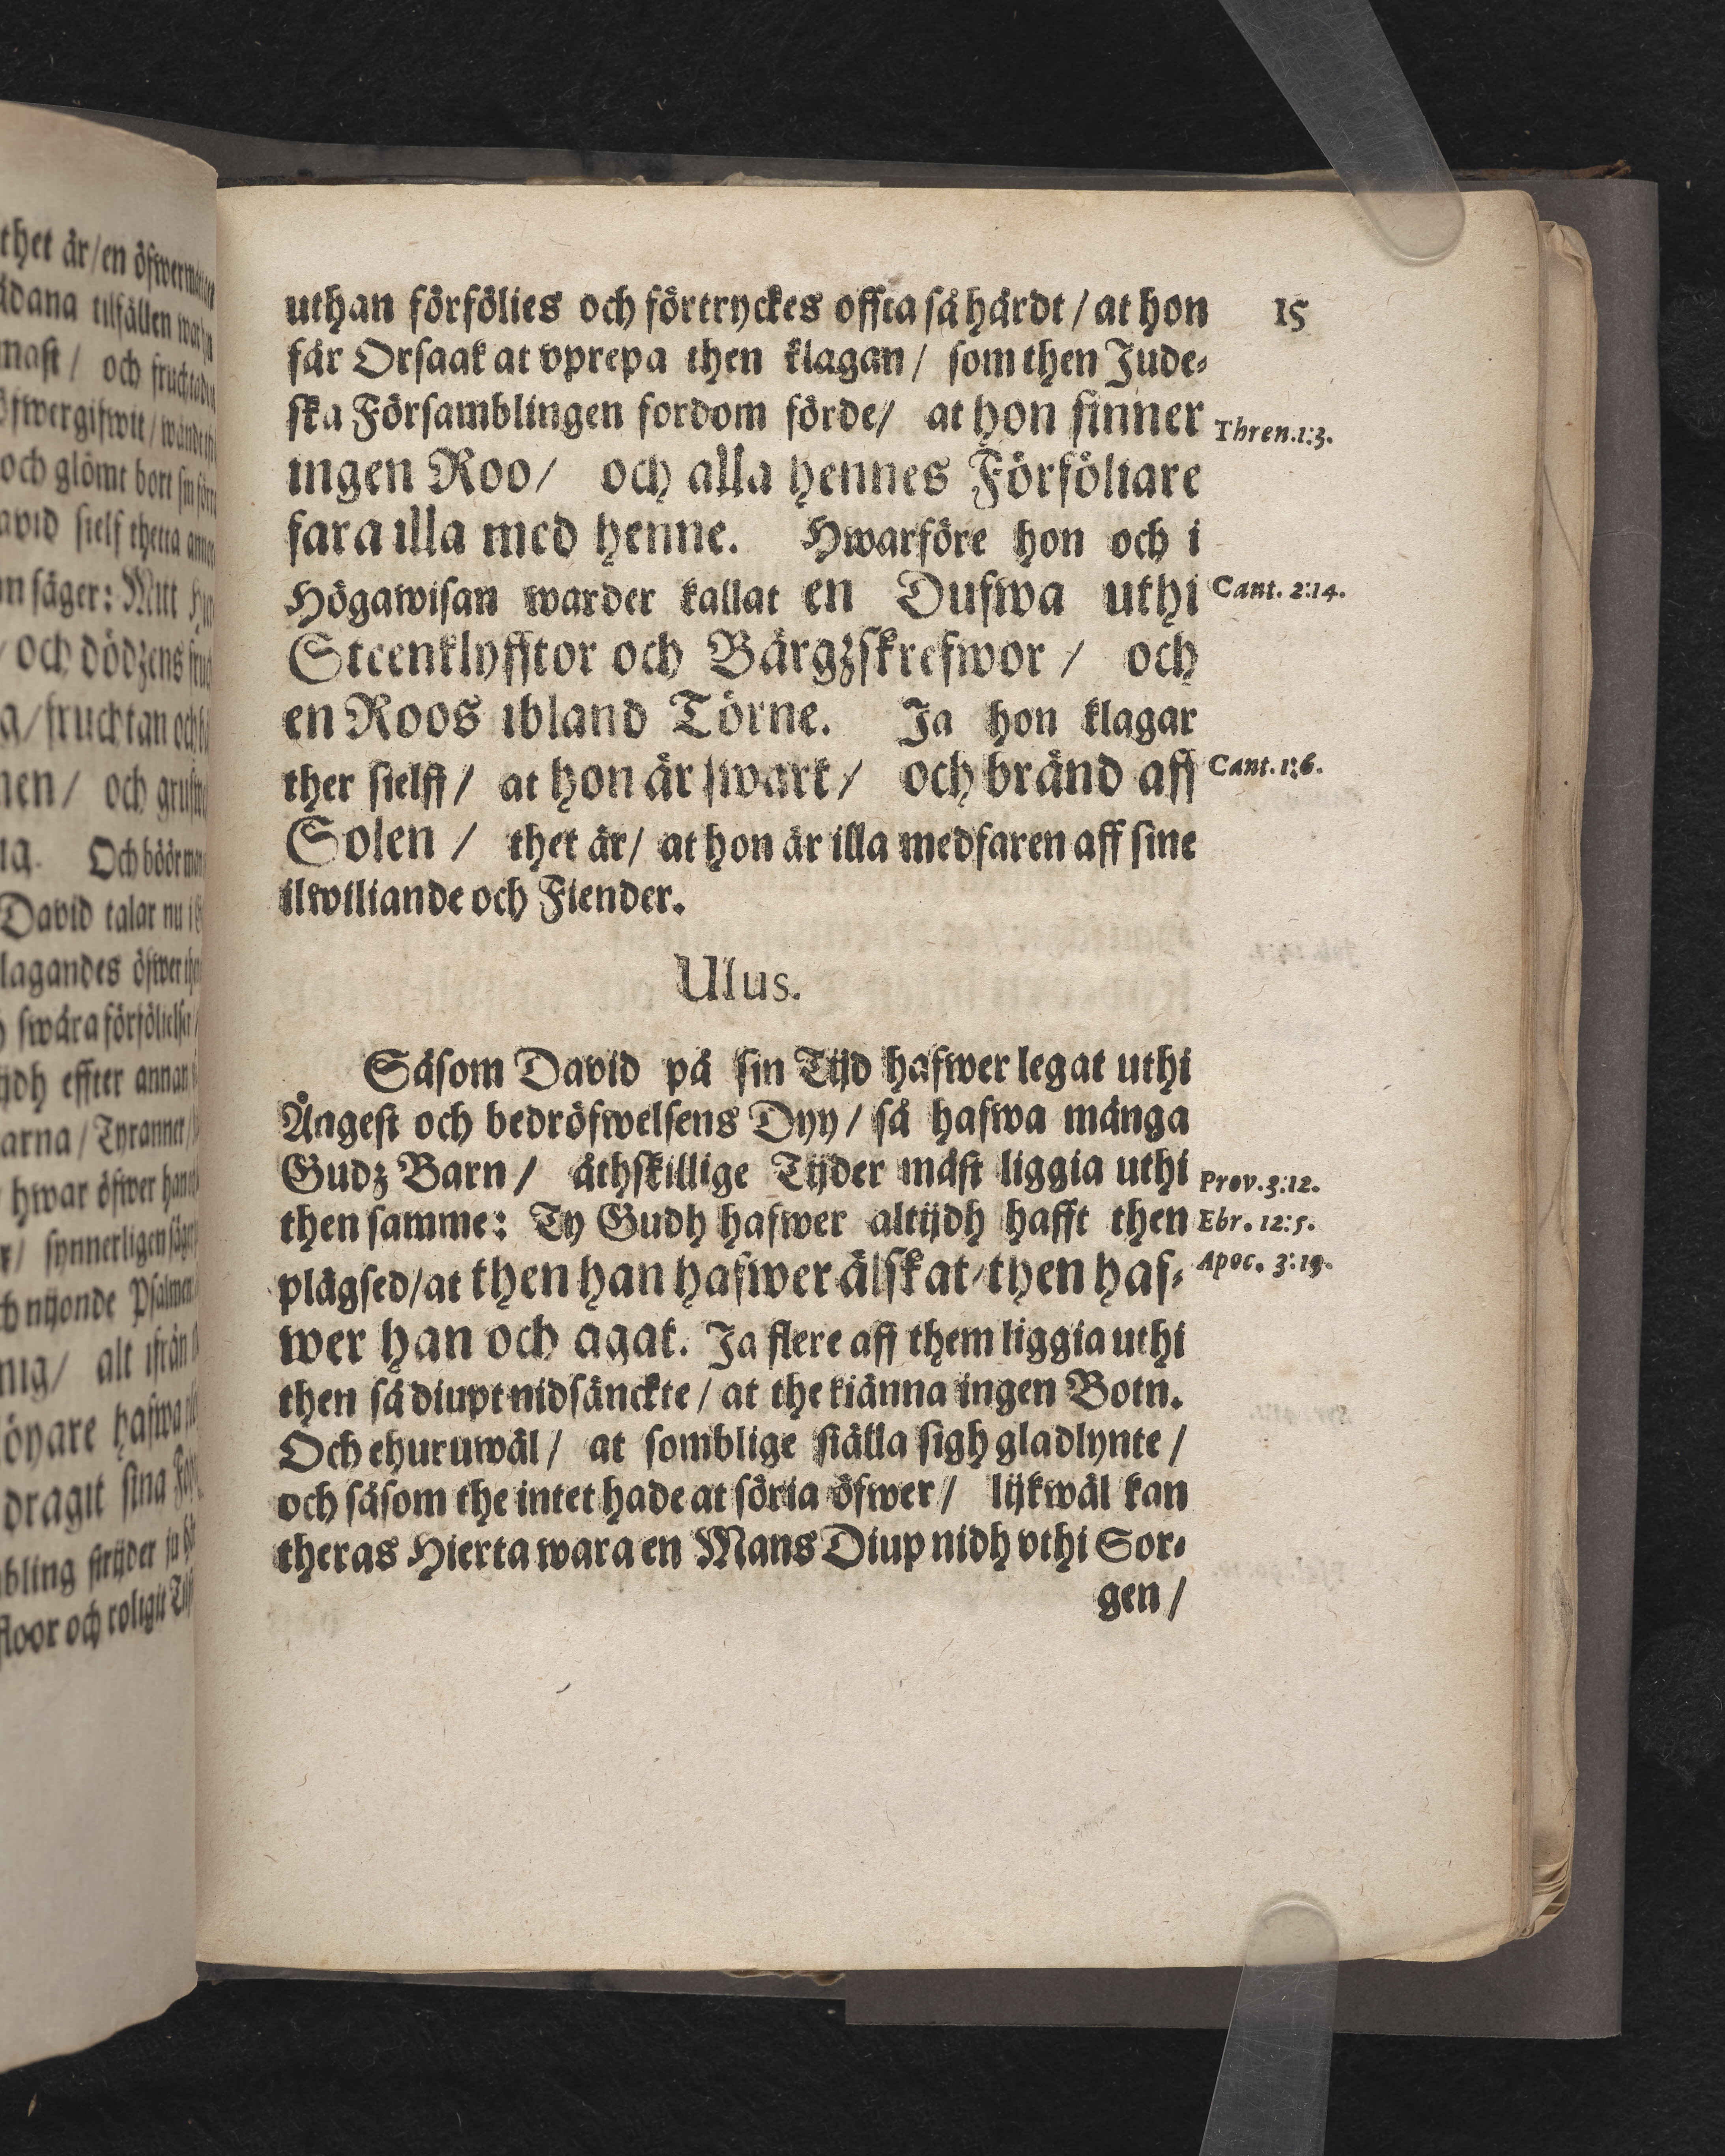 thet är/en öfwermåttan
ådana tilfällen
mast/ och
öfwergifwit/
och glömt bort sin
avid sielf thetta
an säger: Mitt
/och dödzens
a/fruchtan och
men/ och
ig. Och böör man
David talar nu i
lagandes öfwer
swåra förfölielser/
ijdh effter annan
arna/Tyranner/
hwar öfwer han
r/ synnerligen
ch nijonde Psalmen
mig/ alt ifrån
öyare hafwa
dragit sina
bling strijder
floor och roligit
uthan förfölies och förtryckes offta så hårdt/at hon
15
får Orsaak at vprepa then klagan/ som then Jude-
ska Församblingen fordom förde/ at hon finner
Thren.1:3.
ingen Roo/ och alla hennes Förföliare
fara illa med henne. Hwarföre hon och i
Högawisan warder kallat en Dufwa uthi
Cant. 2:14.
Steenklyfftor och Bärgzskrefwor/ och
en Roos ibland Törne. Ja hon klagar
ther sielff/ at hon är swart/ och bränd aff
Cant.1:6.
Solen/ thet är/ at hon är illa medfaren aff sine
ilwiliande och Fiender.
Usus.
Såsom David på sin Tijd hafwer legat uthi
Ångest och bedröfwelsens Dyy/så hafwa många
Gudz Barn/ åthskillige Tijder måst liggia uthi
Prov.3:12.
then samme: Ty Gudh hafwer altijdh hafft then
Ebr. 12:5.
plägsed/at then han hafwer älskat/then haf-
Apoc. 3:19.
wer han och agat. Ja flere aff them liggia uthi
then så diupt nidsänckte/at the kiänna ingen Botn.
Och ehuruwäl/ at somblige ställa sigh gladlynte/
och såsom the intet hade at söria öfwer/ lijkwäl kan
theras Hierta wara en Mans Diup nidh vthi Sor-
gen/